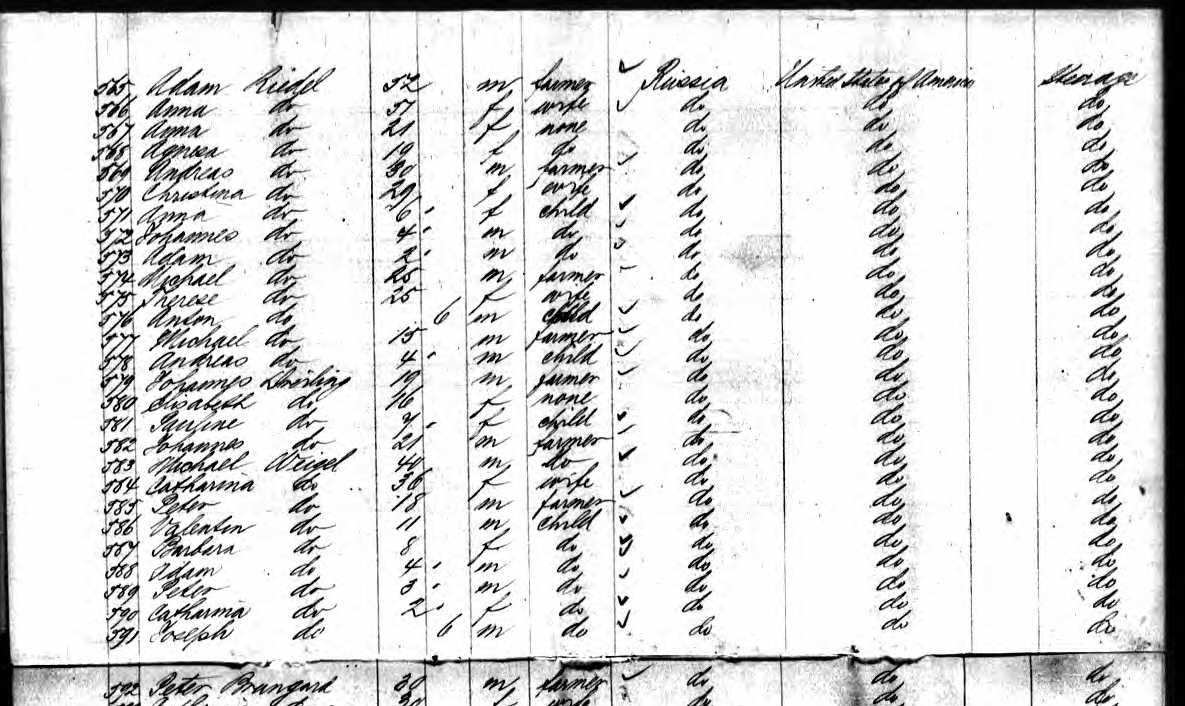 565 Adam Riedel 52 m farmer Russia United States of America Steerage
566 Anna do 51 f wife do do do
567 Anna do 21 f none do do do
568 Agnesa do 19 f do do do do
569 Andreas do 30 m farmer do do do
570 Christina do 29 f wife do do do
571 Anna do 6 f child do do do
572 Johannes do 4 m do do do do
573 Adam do 2 m do do do do
574 Michael do 25 m farmer do do do
575 Therese do 25 f wife do do do
576 Anton do 6 m child do do do
577 Michael do 15 m farmer do do do
578 Andreas do 4 m child do do do
579 Johannes Dreiling 19 m farmer do do do
580 Elisabeth do 16 f none do do do
581 Pauline do f child do do do
582 Johannes do 21 m farmer do do do
583 Michael Weigel 40 m do do do do
584 Catharina do 36 f wife do do do
585 Peter do 18 m farmer do do do
586 Valentin do 11 m child do do do
587 Barbara do 8 f do do do do
588 Adam do 4 m do do do do
589 Peter do 3 m do do do do
590 Catharina do 2 f do do do do
591 Joseph do 6 m do do do do
592 Peter Brungard 38 m farmer do do do
wife do do do